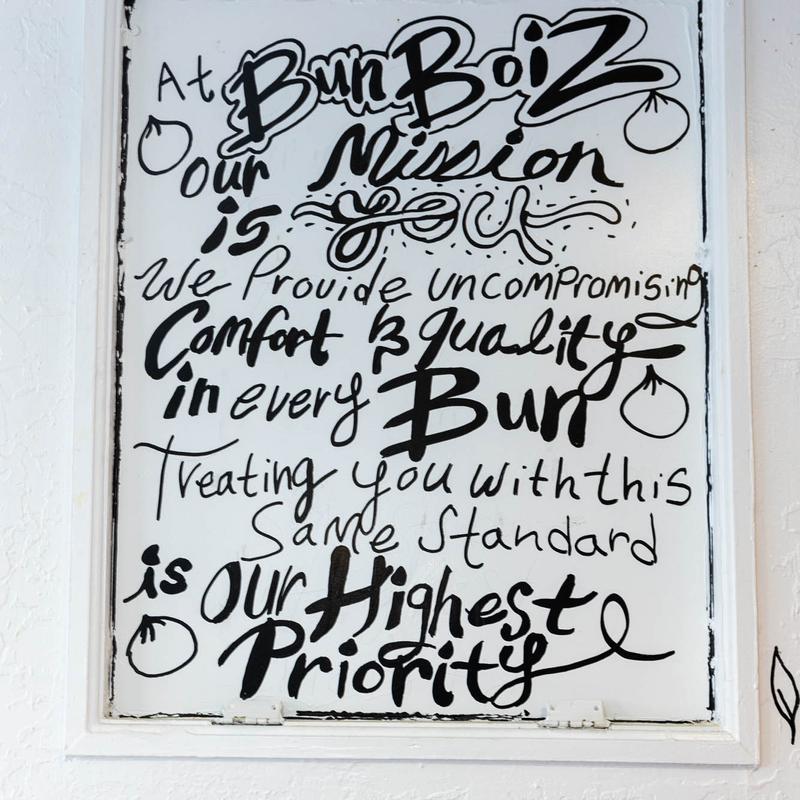 At Bun BoiZ
our Mission
is you
We Provide uncompromising
Comfort & quality
in every Bun
Treating you with this
Same Standard
is Our Highest
Priority